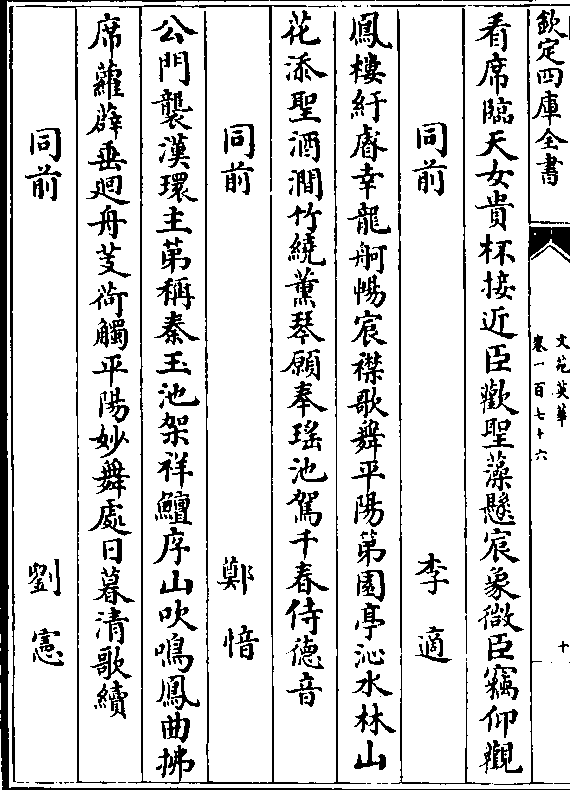 欽定四庫全書
文苑英華
卷一百七十六
十
看席臨天女貴杯接近臣歡聖藻懸宸象微臣竊仰觀
同前 李適
鳳樓紆睿幸龍舸暢宸襟歌舞平陽第園亭沁水林山
花添聖酒澗竹繞薰琴願奉瑤池駕千春侍德音
同前 鄭愔
公門襲漢環主第稱秦玉池架祥鱣序山吹鳴鳳曲拂
席蘿薜垂廻舟芰荷觸平陽妙舞處日暮清歌續
同前 劉憲